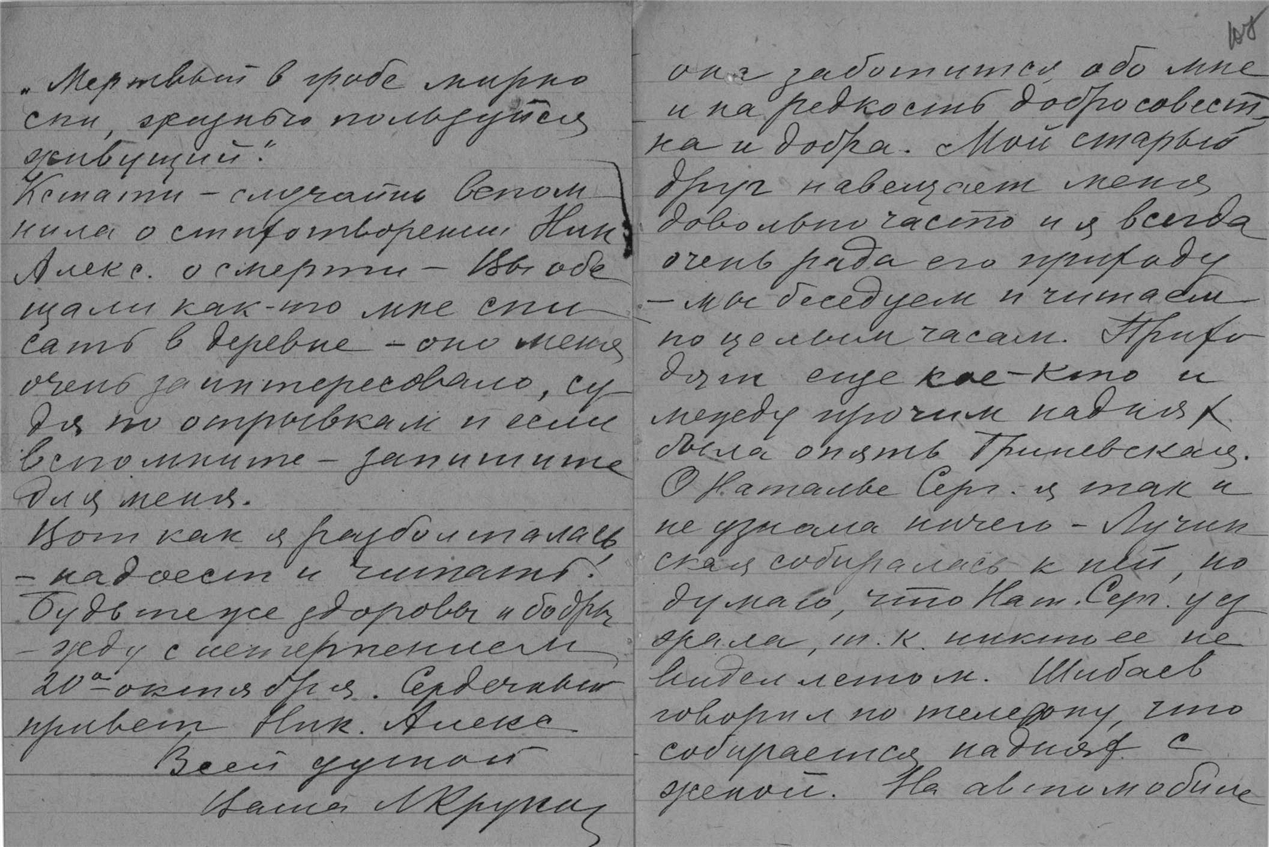 „Мертвый в гробе мирно
спи, жизнью пользуйся
живущий“.
Кстати – случайно вспом
нила о стихотворении Ник
Алекс. о смерти – Вы обе
щали как-то мне спи
сать в деревне – оно меня
очень заинтересовало, су
дя по отрывкам и если
вспомните – запишите
для меня.
Вот как я разболталась
– надоест и читать!
Будьте же здоровы и бодры
– жду с нетерпением
20го октября. Сердечный
привет Ник. Алекс
Всей душой
Ваша
она заботится обо мне
и на редкость добросовест-
на и добра. Мой старый
друг навещает меня
довольно часто и я всегда
очень рада его приходу
– мы беседуем и читаем
по целым часам. Прихо
дят еще кое-кто и
между прочим на днях
была опять Гриневская.
О Наталье Серг. я так и
не узнала ничего – Лучин
ская собиралась к ней, но
думаю, что Нат. Серг. уе
хала, т.к. никто ее не
видел летом. Шибаев
говорил по телефону, что
собирается на днях с
женой. На автомобиле